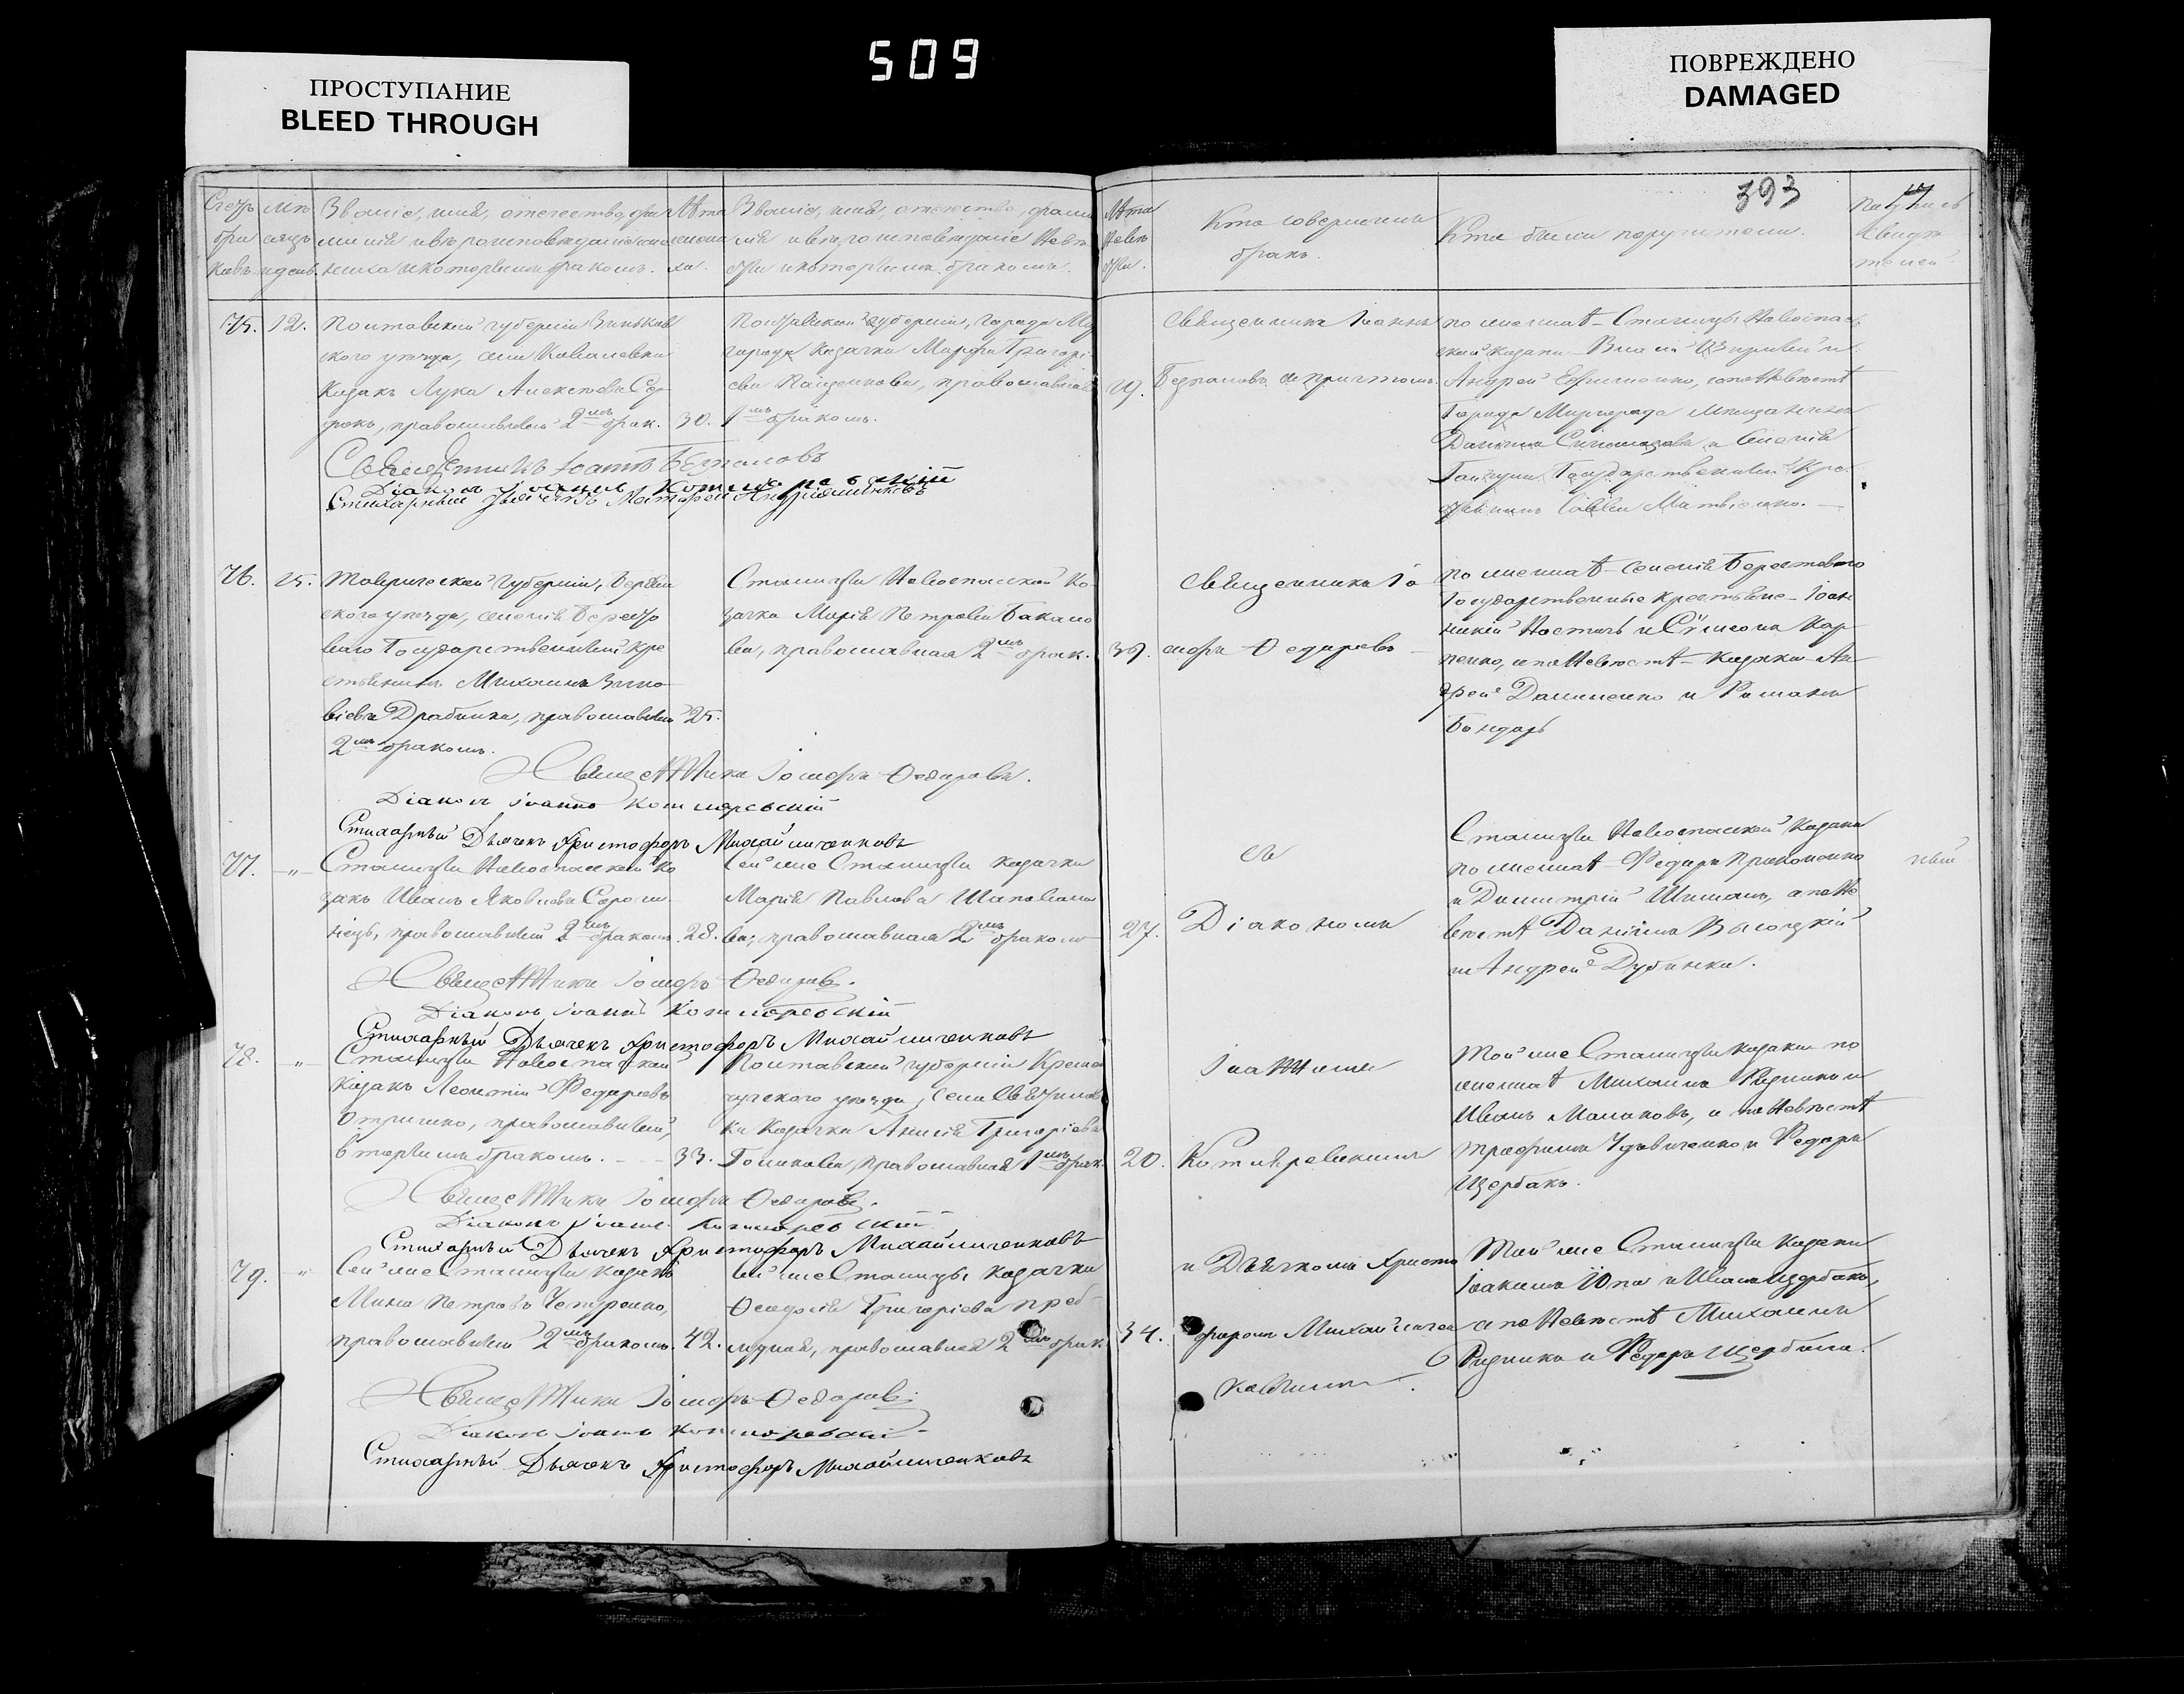 509
ПРОСТУПАНИЕ
BLEED THROUGH
ПОВРЕЖДЕНО
DAMAGED
393
Счетъ
бра
ковъ
мѣ
сяцъ
и день.
Званіе, имя, отечество, фами
милія и вѣроисповѣданіе же
ниха и которымъ бракомъ.
Лѣта
жени
ха.
Званіе, имя, отечество, фами
лія и вѣроисповѣданіе невѣ
сты и которымъ бракомъ.
Лѣта
невѣ
сты.
Кто совершилъ
бракъ.
Кто были поручители.
Подпись
свидѣ
телей
75. 12.
Полтавской губерніи Зиньков
скаго уѣзда, села Ковалевки
казакъ Лука Алексѣевъ
православный 2мъ брак. 30.
Полтавской губерніи, города Ми
города казачка Марфа Григорі
ева православная
1мъ бракомъ.
19.
Священникъ Іоаннъ
Безпаловъ съ причтомъ.
по женихѣ Станицы Новоспас
ской казаки
Андрей Ефименко, по невѣстѣ
Города Миргорода мѣщанинъ
Государственный Кре
стьянинъ Савва Матвіенко.
Священникъ Іоаннъ Безпаловъ
Діаконъ Іоаннъ Котляревскій
Стихарный
76. 25.
Таврической губерніи, Бердян
скаго уѣзда, селенія Бересто
ваго Государственный Кре
стьянинъ Михаилъ Зино
віевъ Драбина, православный 25.
2мъ бракомъ.
Станицы Новоспасской ка
зачка Марія Петрова Бакало
ва, православная 2мъ брак.
39.
Священникъ Іо
сифъ Ѳедоровъ
по женихѣ селенія Берестоваго
Государственные крестьяне Іоан
никій и Сѵмеонъ Кар
пенко, а по невѣстѣ казаки Ан
дрей Даниленко и Романъ
Бондарь
Священникъ Іосифъ Ѳедоровъ.
Діаконъ Іоаннъ Котляревскій
Стихарный Дьячекъ Христофоръ Михайличенковъ
77. -"-
Станицы Новоспасской ка
закъ Иванъ Яковлевъ Сороли
нецъ, православный 2мъ бракомъ. 28.
Сей же Станицы казачка
Марія Павлова Шаповало
ва, православная 2мъ бракомъ
27.
съ
Діакономъ
Станицы Новоспасской казаки
по женихѣ Федоръ Прокопенко
и Димитрій Шишанъ, а по не
вѣстѣ Даніилъ Высоцкій
и Андрей Дубинка.
Священникъ Іосифъ Ѳедоровъ.
Діаконъ Іоаннъ Котляревскій
Стихарный Дьячекъ Христофоръ Михайличенковъ
78. -"-
Станицы Новоспасской
казакъ Леонтій Федоровъ
Отришко, православный,
вторымъ бракомъ. 33.
Полтавской губерніи Кремен
чугскаго уѣзда, села
ка Казачка Анисія Григоріева
Голикова, православная 1мъ брак.
20.
Іоанномъ
Котляревскимъ
Той же Станицы казаки по
женихѣ Михаилъ Рудика и
Иванъ Малаховъ, и по невѣстѣ
Трофимъ Удовиченко и Федоръ
Щербакъ.
Священникъ Іосифъ Ѳедоровъ.
Діаконъ Іоаннъ Котляревскій
Стихарный Дьячекъ Христофоръ Михайличенковъ
79. -"-
Сей же Станицы казакъ
Мина Петровъ Чепуренко,
православный 2мъ бракомъ. 42.
Сей же Станицы казачка
Ѳеодосія Григоріева
православная 2мъ брак
34.
и Дьячкомъ Христо
форомъ Михайличен
ковымъ.
Той же Станицы казаки
Іоакимъ Юпа и Иванъ Щербакъ,
а по невѣстѣ Михаилъ
Рудика и Федоръ Щербина.
Священникъ Іосифъ Ѳедоровъ.
Діаконъ Іоаннъ Котляревскій
Стихарный Дьячекъ Христофоръ Михайличенковъ